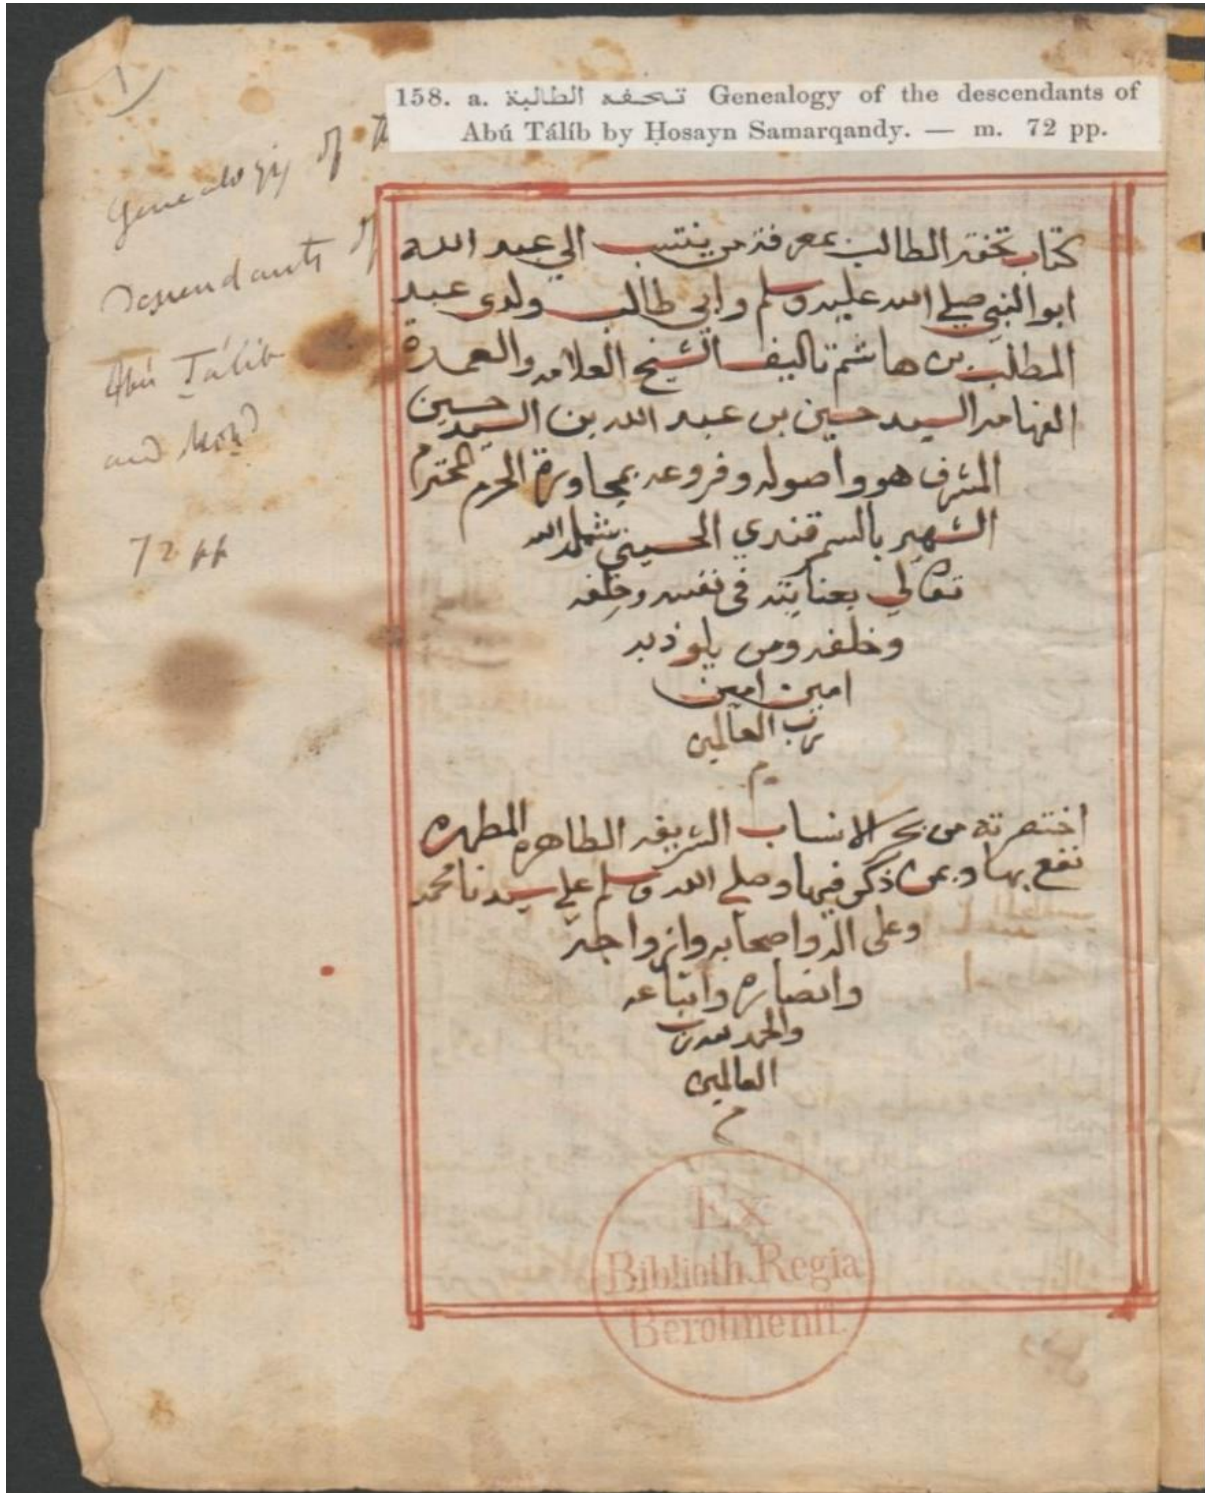 158. a. تحفه الطالبة Genealogy of the descendants of
Abú Tálíb by Ḥosayn Samarqandy. — m. 72 pp.
Genealogy of the
Descendants of
Abú Tálib
and Moḥ
72 pp
كتاب تحفة الطالب بمعرفة من ينتسب الي عبد الله
ابو النبي صلي الله عليه وسلم وابي طالب ولدى عبد
المطلب بن هاشم تاليف الشيخ العلامه والعمدة
الفهامه السيد حسين بن عبد الله بن السيد حسين
المشرف هو واصوله وفروعه بمجاورة الحرم المحترم
الشهير بالسمرقندي الحسيني شمله الله
تعالي بعنايته في نفسه وخلفه
وخلفه ومن يلوذ به
امين امين
رب العالمين
م
اختصرته من بحر الانساب الشريفه الطاهره المطهره
نفع بها وبمن ذكر فيها وصلي الله وسلم علي سيدنا محمد
وعلى اله واصحابه وازواجه
وانصاره واتباعه
والحمد لله رب
العالمين
م
Ex
Biblioth. Regia
Berolinensi.